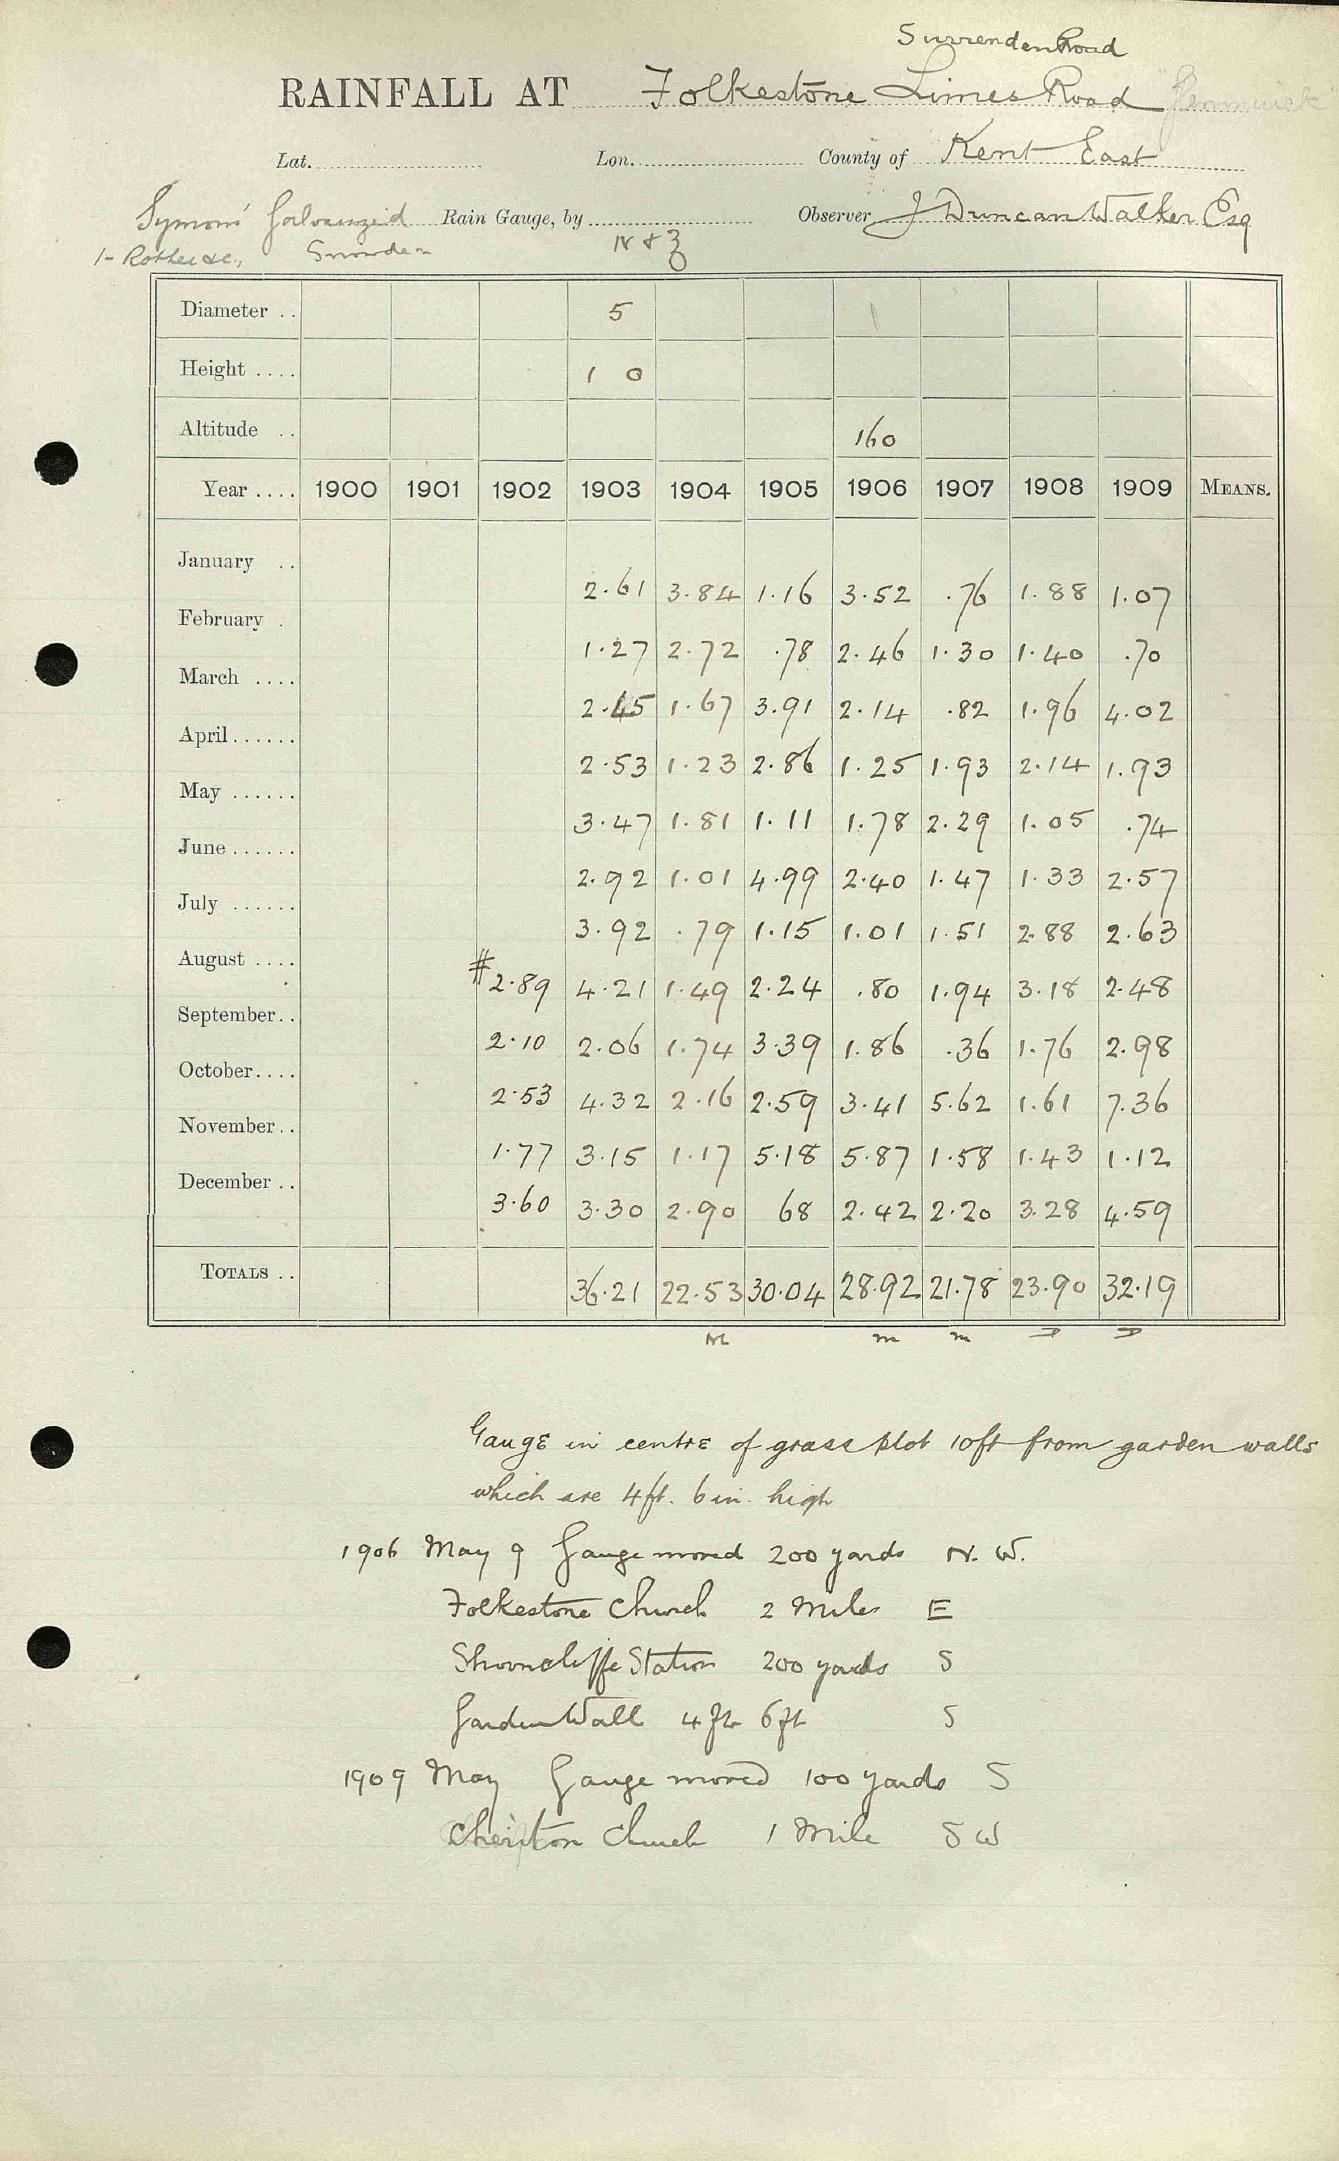 Surrenden Road
RAINFALL AT Folkestone Limes Road
Lat. Lon. County of Kent East
Symons' Galvanized Rain Gauge, by Observer J Duncan Walker Esq
1- Rother &c., Snowden
Diameter .. 5
Height .... 1 0
Altitude .. 160
Year .... 1900 1901 1902 1903 1904 1905 1906 1907 1908 1909 MEANS.
January .. 2.61 3.84 1.16 3.52 .76 1.88 1.07
February . 1.27 2.72 .78 2.46 1.30 1.40 .70
March .... 2.45 1.67 3.91 2.14 .82 1.96 4.02
April ...... 2.53 1.23 2.86 1.25 1.93 2.14 1.93
May ...... 3.47 1.81 1.11 1.78 2.29 1.05 .74
June ...... 2.92 1.01 4.99 2.40 1.47 1.33 2.57
July ...... 3.92 .79 1.15 1.01 1.51 2.88 2.63
August .... #2.89 4.21 1.49 2.24 .80 1.94 3.18 2.48
September.. 2.10 2.06 1.74 3.39 1.86 .36 1.76 2.98
October.... 2.53 4.32 2.16 2.59 3.41 5.62 1.61 7.36
November.. 1.77 3.15 1.17 5.18 5.87 1.58 1.43 1.12
December .. 3.60 3.30 2.90 68 2.42 2.20 3.28 4.59
TOTALS .. 36.21 22.53 30.04 28.92 21.78 23.90 32.19
M m m D D
Gauge in centre of grass plot 10ft from garden walls
which are 4ft. 6in. high
1906 May 9 Gauge moved 200 yards N. W.
Folkestone Church 2 Miles E
Shorncliffe Station 200 yards S
Garden Wall 4 ft 6 ft S
1909 May Gauge moved 100 yards S
Cheriton Church 1 Mile S W